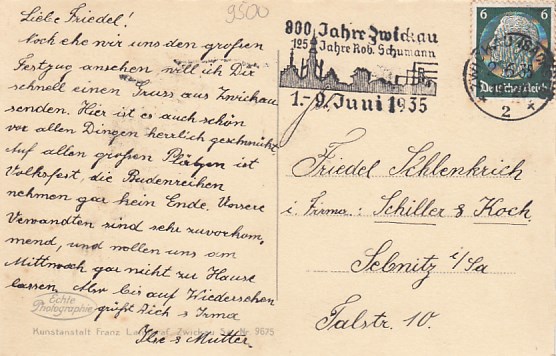 9500
Liebe Friedel!
Noch ehe wir uns den großen
Festzug ansehen will ich Dir
schnell einen Gruss aus Zwickau
senden. Hier ist es auch schön
vor allen Dingen herrlich geschmückt.
Auf allen großen Plätzen ist
Volksfest, die Budenreihen
nehmen gar kein Ende. Unsere
Verwandten sind sehr zuvorkom,
mend, und wollen uns am
Mittwoch gar nicht zu Hause
lassen. Also bis auf Wiedersehen
grüßt Dich s Irma
Ilse s Mutter.
Echte
Photographie
Kunstanstalt Franz Landgraf, Zwickau Sa. Nr. 9675
800 Jahre Zwickau
125 Jahre Rob. Schumann
1.-9. Juni 1935
6 6
Deutsches Reich
ZWICKAU (SACHS)
2
Friedel Schlenkrich
i. Firma: Schiller & Koch
Sebnitz i/Sa
Talstr. 10.